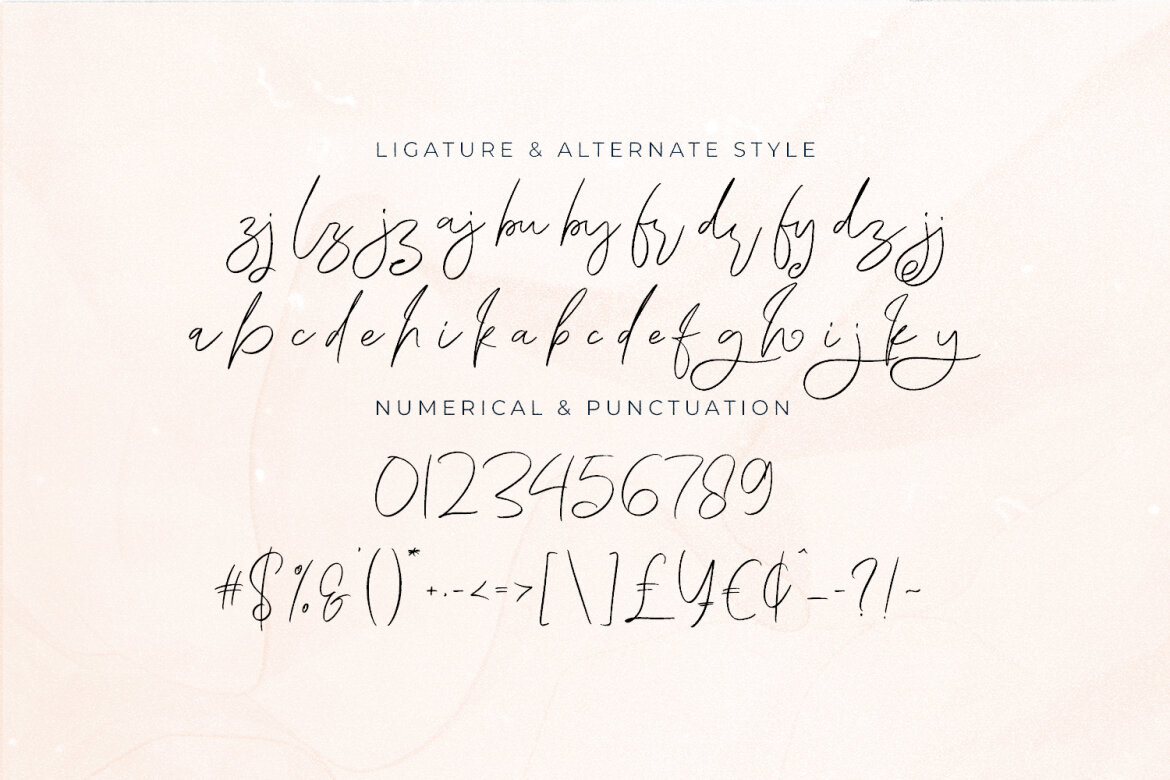 LIGATURE & ALTERNATE STYLE
zj lz jz aj bu by fr dr fy dz jj
a b c d e h i k a b c d e f g h i j k y
NUMERICAL & PUNCTUATION
0123456789
#$%&'()*+.-<=>[\]£¥€¢^_-?/~